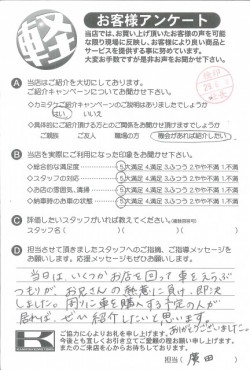 軽
お客様アンケート
当店では、お買い上げ頂いたお客様の声を可能
な限り現場に反映し、お客様により良い商品と
サービスを提供する事に努めています。
大変お手数ですが是非お声をお聞かせ下さい。
A 当店はご紹介を大切にしております。
ご紹介キャンペーンについてお聞かせ下さい。
◇カミタケご紹介キャンペーンのご説明はありましたでしょうか
はい ・ いいえ
◇具体的にご紹介頂ける方とのご関係をお聞かせ頂けますでしょうか
ご親族 ご友人 職場の方 機会があれば紹介したい
B 当店を実際にご利用になった印象をお聞かせ下さい。
◇総合的な満足度 5大満足 4.満足 3.ふつう 2.やや不満 1.不満
◇スタッフの対応 5大満足 4.満足 3.ふつう 2.やや不満 1.不満
◇お店の雰囲気、清掃 5大満足 4.満足 3.ふつう 2.やや不満 1.不満
◇納車時のお車の状態 5大満足 4.満足 3.ふつう 2.やや不満 1.不満
C 評価したいスタッフがいれば教えてください。(複数回答可)
スタッフ名( )( )( )
D 担当させて頂きましたスタッフへのご指摘、ご指導メッセージを
お願いします。応援メッセージもぜひお願いします。
当日は、いくつかお店を回って車をえらぶ
つもりが、お兄さんの熱意に負け、即決
しました。周りに車を購入する予定の人が
居れば、ぜひ紹介したいと思います。
ありがとうございました。
ご協力に心よりお礼を申し上げます。
今後とも宜しくお引き立てご愛顧の程お願い申し上げます。
またのご来店を心よりお待ちしております。
担当( 廣田 )